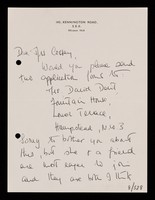 KENNINGTON ROAD,
S.E.11.
Dear
Would you please send
two application forms to
Mrs David Dent
Fountain House,
Terrace,
Hampstead, N.W.3
Sorry to bother you about
this, but she & a friend
are most eager to join
and they are both I think